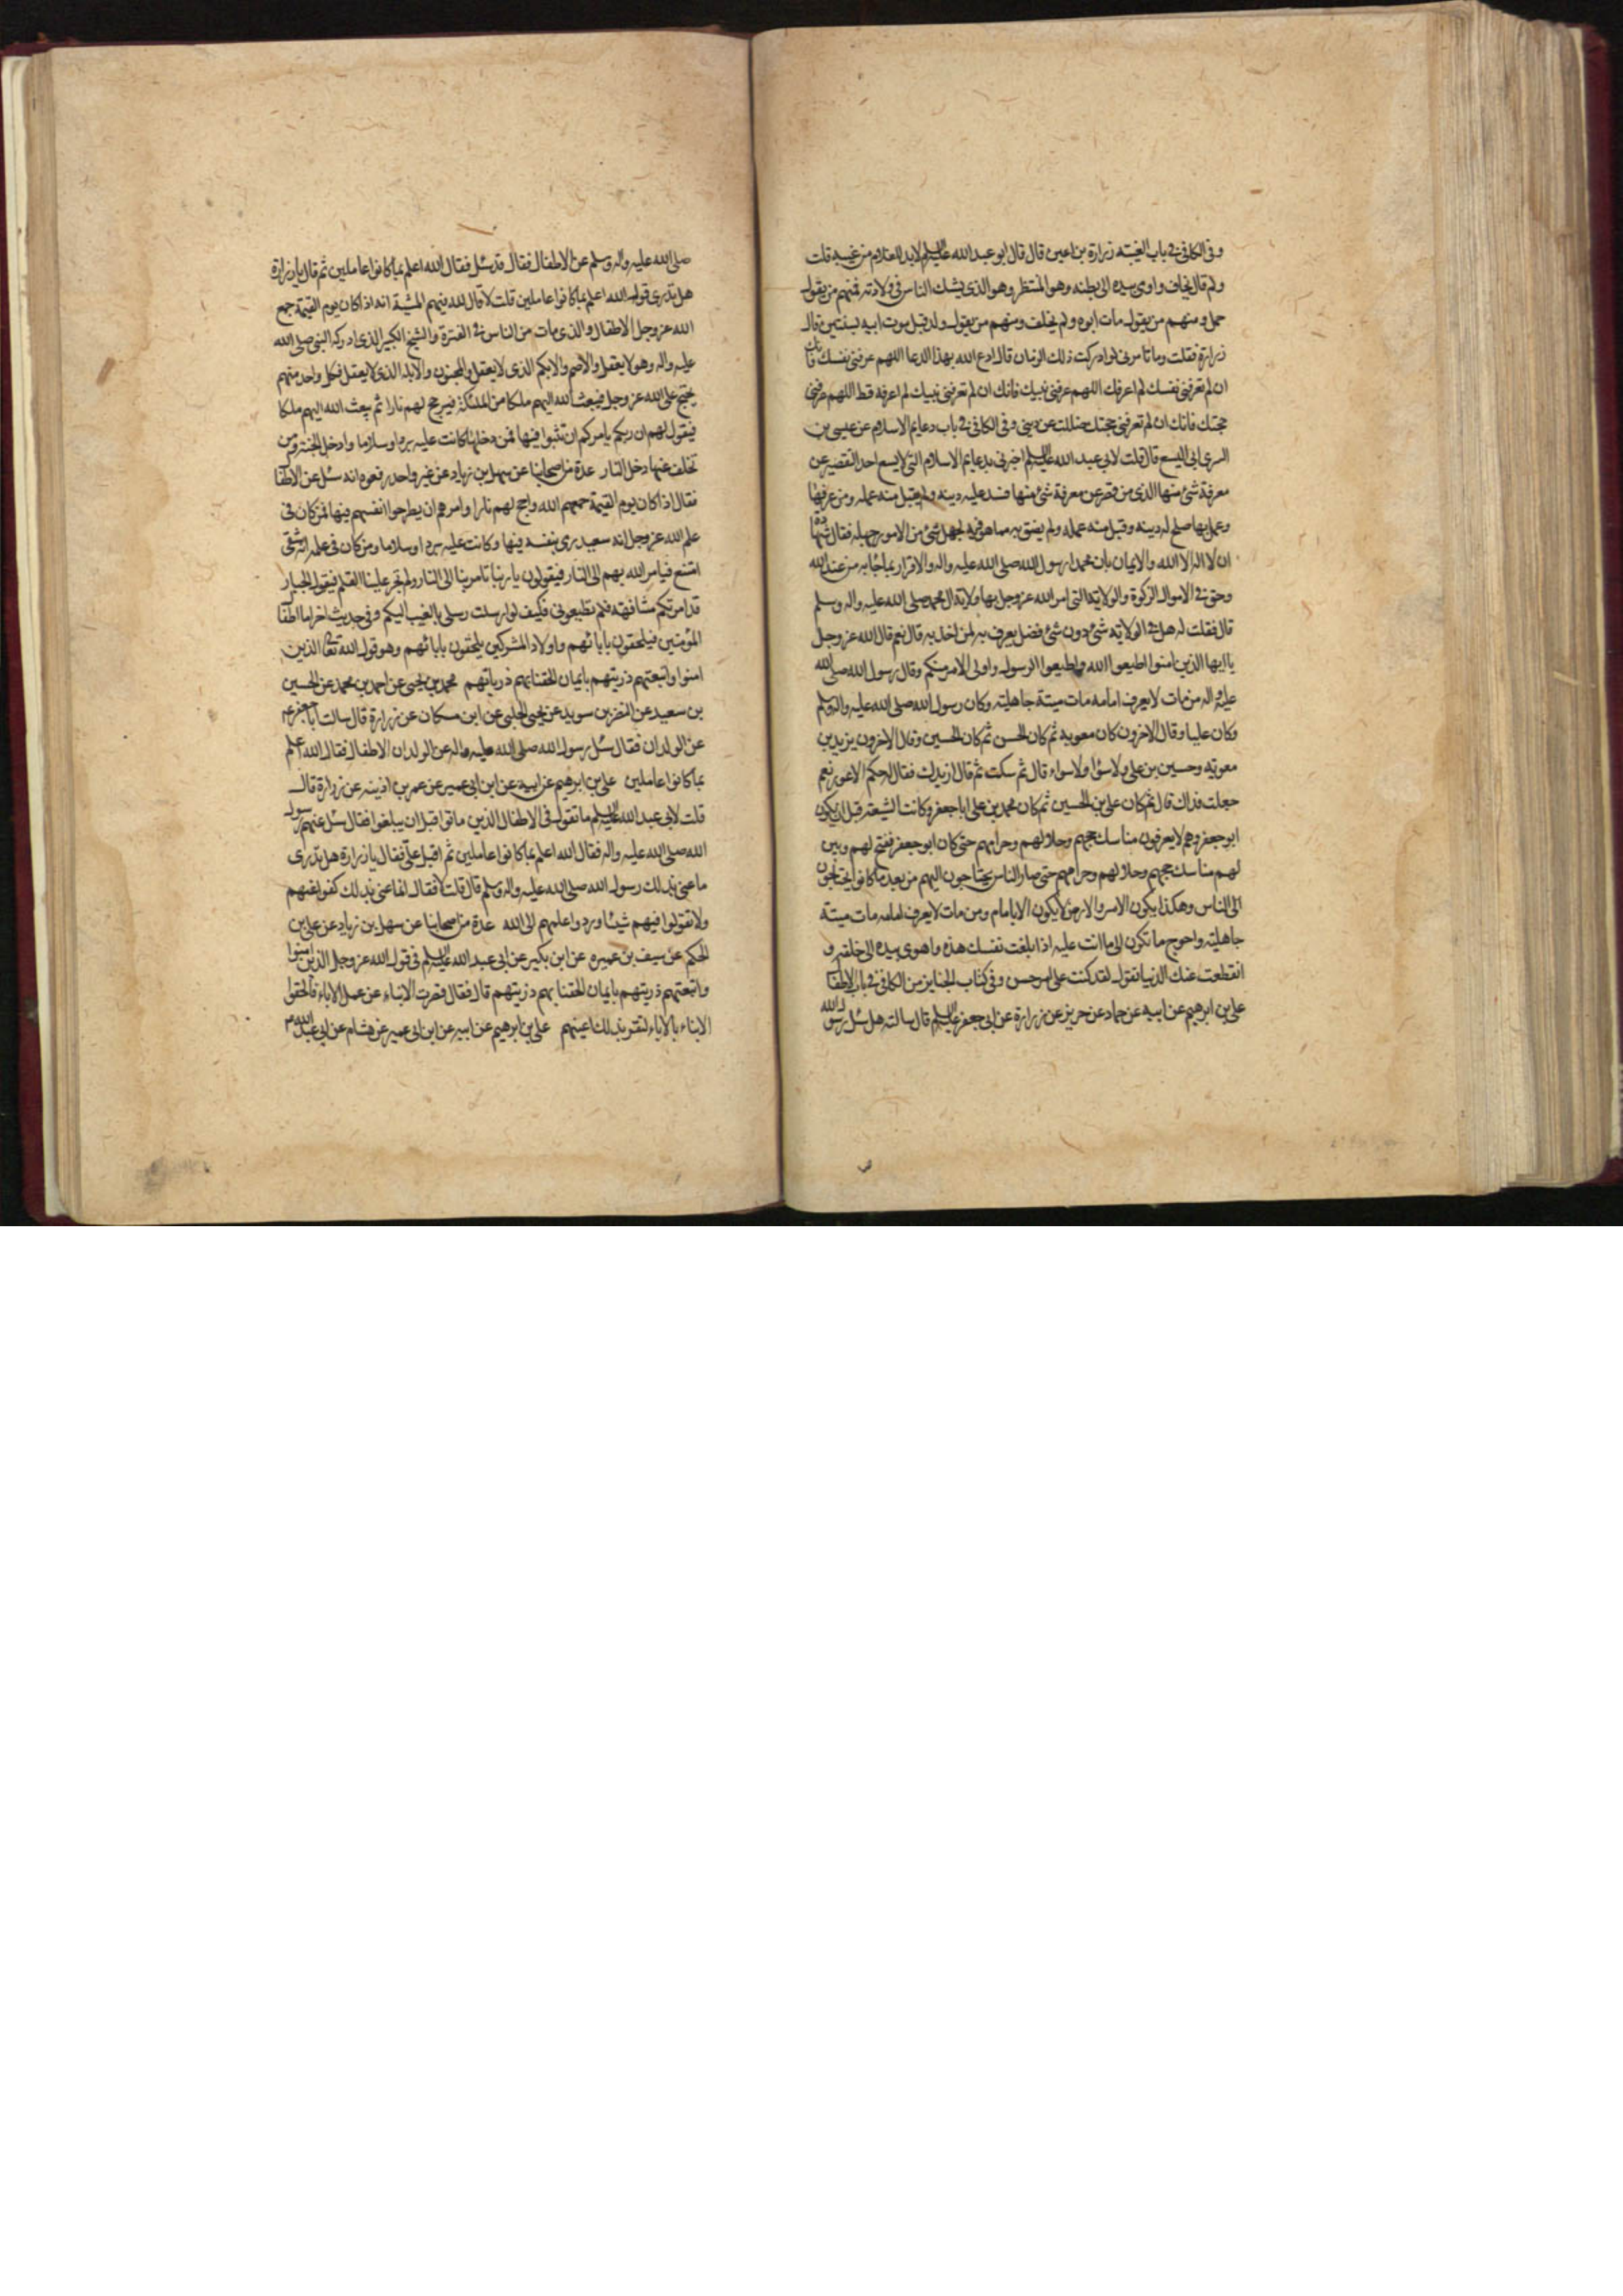 وفى الكافى فى باب الغيبة زرارة بن اعين قال قال ابو عبد الله عليه السلم لابد للغلام من غيبة قلت
ولم قال يخاف واوى بيده الى بطنه وهو المنتظر وهو الذى يشك الناس فى ولادته فمنهم من يقول
حمل ومنهم من يقول مات ابوه ولم يخلف ومنهم من يقول ولد قبل موت ابيه بسنتين قال
زرارة فقلت وما تامرنى لو ادركت ذلك الزمان قال ادع الله بهذا الدعا اللهم عرفنى نفسك فانك
ان لم تعرفنى نفسك لم اعرفك اللهم عرفنى نبيك فانك ان لم تعرفنى نبيك لم اعرفه قط اللهم عرفنى
حجتك فانك ان لم تعرفنى حجتك ضللت عن دينى وفى الكافى فى باب دعايم الاسلام عن عيسى بن
السرى ابى اليسع قال قلت لابى عبد الله عليه السلم اخبرنى بدعايم الاسلام التى لا يسع احد التقصير عن
معرفة شئ منها الذى من قصر عن معرفة شئ منها فسد عليه دينه ولم يقبل منه عمله ومن عرفها
وعمل بها صلح له دينه وقبل منه عمله ولم يضق به مما هو فيه لجهل شئ من الامور جهله فقال شهادة
ان لا اله الا الله والايمان بان محمدا رسول الله صلى الله عليه واله والاقرار بما جاء به من عند الله
وحق فى الاموال الزكوة والولاية التى امر الله عز وجل بها ولاية ال محمد صلى الله عليه واله وسلم
قال فقلت له هل فى الولاية شئ دون شئ فضل يعرف به لمن اخذ به قال نعم قال الله عز وجل
يا ايها الذين امنوا اطيعوا الله واطيعوا الرسول واولى الامر منكم وقال رسول الله صلى الله
عليه واله من مات لا يعرف امامه مات ميتة جاهلية وكان رسول الله صلى الله عليه واله وسلم
وكان عليا وقال الاخرون كان معوية ثم كان الحسن ثم كان الحسين وقال الاخرون يزيد بن
معوية وحسين بن على ولا سؤا ولا سواء قال ثم سكت ثم قال ازيدك فقال له حكم الاعور نعم
جعلت فداك قال ثم كان على بن الحسين ثم كان محمد بن على ابا جعفر وكانت الشيعة قبل ان يكون
ابو جعفر وهم لا يعرفون مناسك حجهم وحلالهم وحرامهم حتى كان ابو جعفر ففتح لهم وبين
لهم مناسك حجهم وحلالهم وحرامهم حتى صار الناس يحتاجون اليهم من بعد ما كانوا يحتاجون
الى الناس وهكذا يكون الامر والارض لا يكون الا بامام ومن مات لا يعرف امامه مات ميتة
جاهلية واحوج ما تكون الى ما انت عليه اذا بلغت نفسك هذه واهوى بيده الى حلقه و
انقطعت عنك الدنيا تقول لقد كنت على امر حسن وفى كتاب الجنايز من الكافى فى باب الاطفا
على بن ابرهيم عن ابيه عن حماد عن حريز عن زرارة عن ابى جعفر عليه السلم قال سالته هل سئل رسول الله
صلى الله عليه واله وسلم عن الاطفال فقال قد سئل فقال الله اعلم بما كانوا عاملين ثم قال يا زرارة
هل تدرى قوله الله اعلم بما كانوا عاملين قلت لا قال لله فيهم المشية انه اذا كان يوم القيمة جمع
الله عز وجل الاطفال والذى مات من الناس فى الفترة والشيخ الكبير الذى ادركه النبى صلى الله
عليه واله وهو لا يعقل والاصم والابكم الذى لا يعقل والمجنون والابله الذى لا يعقل فكل واحد منهم
يحتج على الله عز وجل فيبعث الله اليهم ملكا من الملئكة فيؤجج لهم نارا ثم يبعث الله اليهم ملكا
فيقول لهم ان ربكم يامركم ان تثبوا فيها فمن دخلها كانت عليه بردا وسلاما وادخل الجنة ومن
تخلف عنها دخل النار عدة من اصحابنا عن سهل بن زياد عن غير واحد رفعوه انه سئل عن الاطفا
فقال اذا كان يوم القيمة جمعهم الله واجج لهم نارا وامرهم ان يطرحوا انفسهم فيها فمن كان فى
علم الله عز وجل انه سعيد رمى بنفسه فيها وكانت عليه بردا وسلاما ومن كان فى علمه انه شقى
امتنع فيامر الله بهم الى النار فيقولون يا ربنا تامر بنا الى النار ولم تجر علينا القلم فيقول الجبار
قد امرتكم مشافهة فلم تطيعونى فكيف لو ارسلت رسلى بالغيب اليكم وفى حديث اخر اما اطفا
المؤمنين فيلحقون بابائهم واولاد المشركين يلحقون بابائهم وهو قول الله تعالى الذين
امنوا واتبعتهم ذريتهم بايمان الحقنا بهم ذرياتهم محمد بن يحيى عن احمد بن محمد عن الحسين
بن سعيد عن النضر بن سويد عن يحيى الحلبى عن ابن مسكان عن زرارة قال سالت ابا جعفر ع
عن الولدان فقال سئل رسول الله صلى الله عليه واله عن الولدان الاطفال فقال الله اعلم
بما كانوا عاملين على بن ابرهيم عن ابيه عن ابن ابى عمير عن عمر بن اذينه عن زرارة قال
قلت لابى عبد الله عليه السلم ما تقول فى الاطفال الذين ماتوا قبل ان يبلغوا فقال سئل عنهم رسول
الله صلى الله عليه واله فقال الله اعلم بما كانوا عاملين ثم اقبل على فقال يا زرارة هل تدرى
ما عنى بذلك رسول الله صلى الله عليه واله وسلم قال قلت لا فقال انما عنى بذلك كفوا عنهم
ولا تقولوا فيهم شيئا وردوا علمهم الى الله عدة من اصحابنا عن سهل بن زياد عن على بن
الحكم عن سيف بن عميره عن ابن بكير عن ابى عبد الله عليه السلم فى قول الله عز وجل الذين امنوا
واتبعتهم ذريتهم بايمان الحقنا بهم ذريتهم قال فقال قصرت الابناء عن عمل الاباء فالحقوا
الابناء بالاباء لتقر بذلك اعينهم على بن ابرهيم عن ابيه عن ابن ابى عمير عن هشام عن ابى عبد الله ع